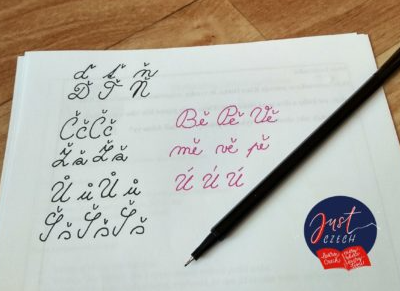 ď ť ň
Ď Ť Ň
ČčČč
Žž Žž
Ů ů Ů ů
Šš Šš Šš
Bě Pě Vě
mě vě pě
Ú Ú Ú
Just
CZECH